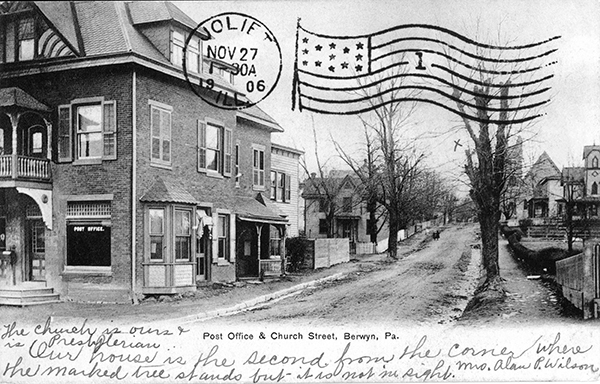 JOLIET
NOV 27
1-30A
1906
ILL.
1
POST OFFICE.
x
Post Office & Church Street, Berwyn, Pa.
The church is ours &
is Presbyterian.
Our house is the second from the corner where
the marked tree stands but it is not in sight. Mrs. Alan P. Wilson